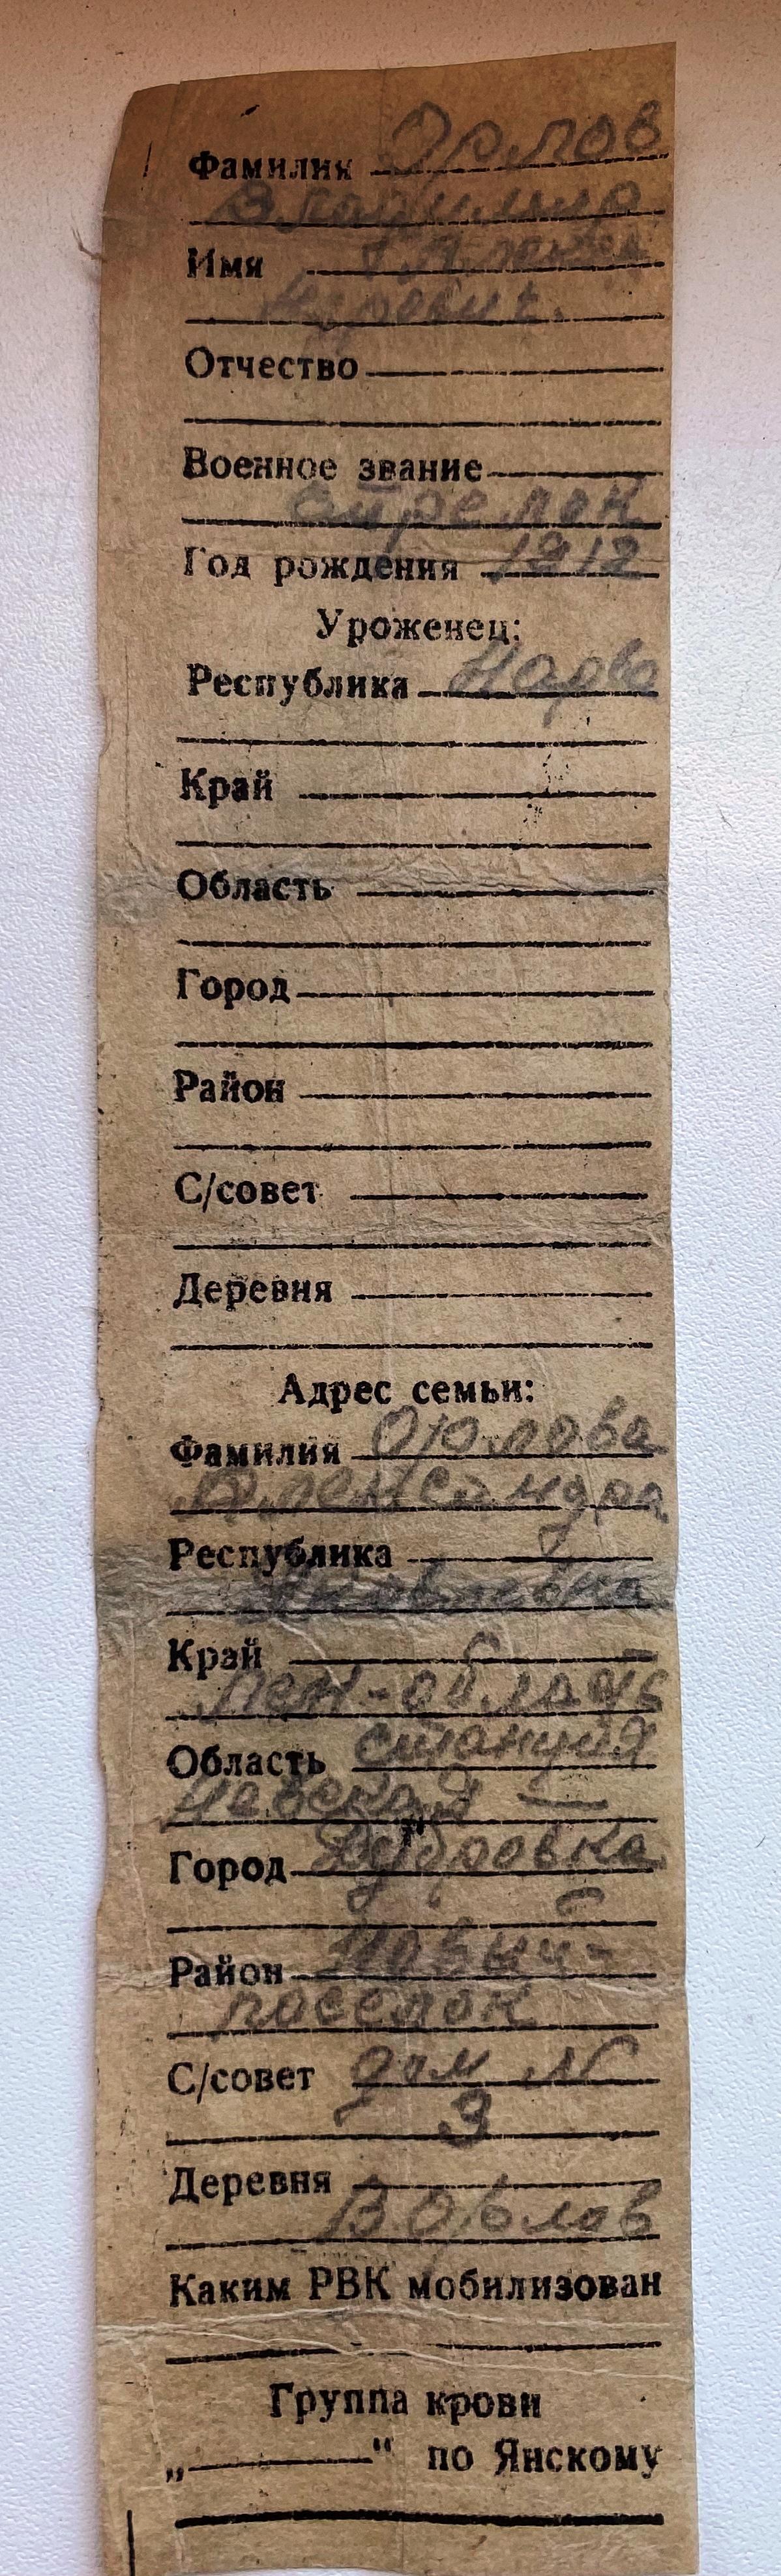 Фамилия Орлов
Владимир
Имя Алексан
дрович.
Отчество
Военное звание
стрелок
Год рождения 1912
Уроженец:
Республика Нарва
Край
Область
Город
Район
С/совет
Деревня
Адрес семьи:
Фамилия Орлова
Александра
Республика
Яковлевна
Край
Лен-область
Область станция
Невская —
Город Дубровка
Район Новый-
поселок
С/совет дом N
3
Деревня
В Орлов
Каким РВК мобилизован
Группа крови
„ “ по Янскому